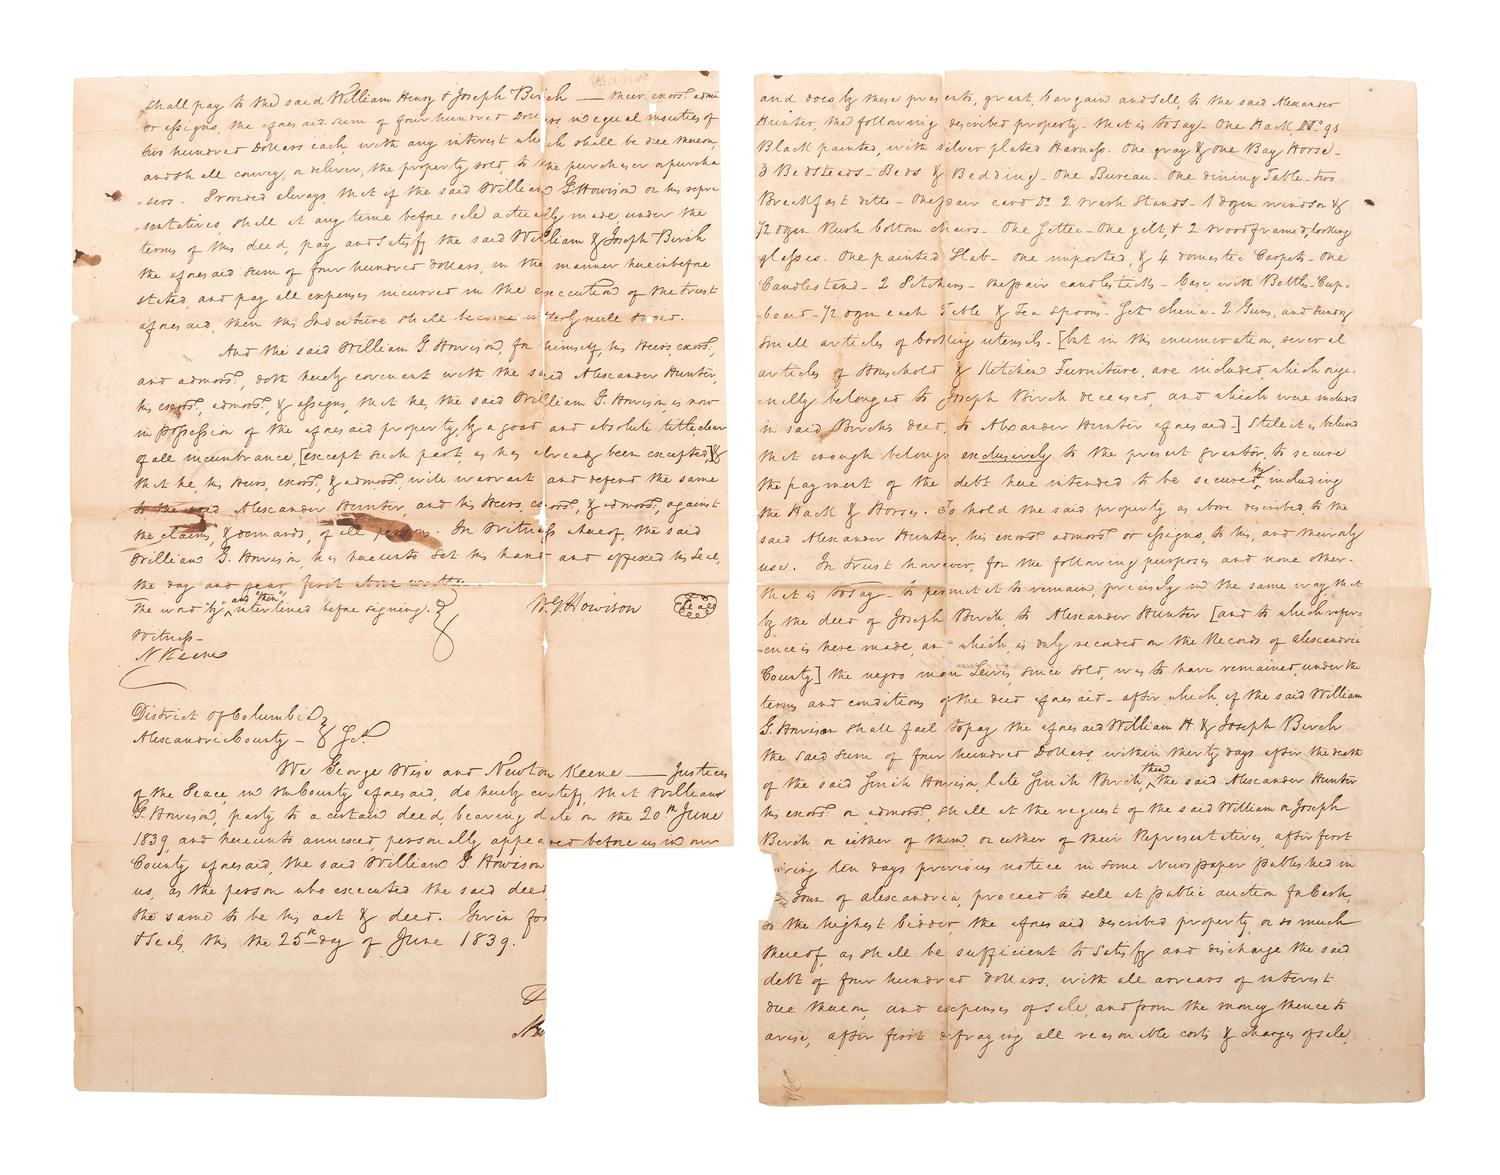 shall pay to the said William Henry & Joseph Birch — their exors. adms
or assigns, the aforesaid sum of four hundred Dollars in equal moieties of
two hundred Dollars each, with any interest which shall be due thereon,
and shall convey, or deliver, the property sold, to the purchaser or purcha
-sers. Provided always, that if the said William G. Howison or his repre
-sentatives, shall at any time before sale actually made under the
terms of this deed, pay and satisfy the said William & Joseph Birch
the aforesaid sum of four hundred dollars, in the manner hereinbefore
stated, and pay all expenses incurred in the execution of the trust
aforesaid, then this Indenture shall become utterly null & void.
And the said William G. Howison, for himself, his Heirs, exors.,
and admors., doth hereby covenant with the said Alexander Hunter,
his exors., admors., & assigns, that he, the said William G. Howison, is now
in possession of the aforesaid property, by a good and absolute title, clear
of all incumbrance, [except such part as has already been excepted] &
that he, his Heirs, exors., & admors., will warrant and defend the same
to the said Alexander Hunter, and his Heirs, exors., & admors., against
the claims, & demands, of all persons. In Witness whereof, the said
William G. Howison, has hereunto set his hand and affixed his Seal,
the day and year first above written.
The word "by" and "then" interlined before signing.
W. G. Howison Seal
Witness—
N Keene
District of Columbia
Alexandria County — Sct.
We George Wise and Newton Keene — Justices
of the Peace, in the County aforesaid, do hereby certify, that William
G. Howison, party to a certain deed, bearing date on the 20th June
1839, and hereunto annexed, personally appeared before us in our
County aforesaid, the said William G. Howison
us, as the person who executed the said deed
the same to be his act & deed. Given
& Seals, this the 25th day of June 1839.
and does by these presents, grant, bargain and sell, to the said Alexander
Hunter, the following described property— that is to say— One Hack No. 91
Black painted, with silver plated Harness. One gray & one Bay Horse—
3 Bedsteads— Beds & Bedding— One Bureau— One dining Table— two
Breakfast ditto— One pair card Do. 2 Wash Stands— 1 dozen windsor &
1/2 dozen Rush bottom chairs— One Settee— One gilt, & 2 wood framed, looking
glasses. One painted Slab— One imported, & 4 domestic Carpets— One
Candlestand— 2 Pitchers— One pair candlesticks— Case with Bottles— Cup-
board— 1/2 dozen each Table & Tea Spoons— Set china— 2 Guns, and sundry
small articles of cooking utensils— [but in this enumeration, several
articles of Household & Kitchen Furniture, are included which orig-
-inally belonged to Joseph Birch deceased, and which were included
in said Birch's deed, to Alexander Hunter aforesaid—] Still it is believed
that enough belongs exclusively to the present grantor, to secure
the payment of the debt here intended to be secured by including
the Hack & Horses. To hold the said property as above described, to the
said Alexander Hunter, his exors. admors. or assigns, to his, and their only
use. In trust however, for the following purposes and none other—
that is to say— to permit it to remain, precisely in the same way, that
by the deed of Joseph Birch, to Alexander Hunter [and to which refer-
-ence is here made, and which, is duly recorded on the Records of Alexandria
County] the negro man Lewis, since sold, was to have remained, under the
terms and conditions of the deed aforesaid— after which, if the said William
G. Howison shall fail to pay the aforesaid William H. & Joseph Birch
the said sum of four hundred Dollars, within thirty days after the death
of the said Howison, late Birch, then the said Alexander Hunter
his exors. or admors., shall at the request of the said William or Joseph
Birch or either of them or either of their Representatives, after first
ten days previous notice in some Newspaper published in
Town of Alexandria, proceed to sell at public auction for Cash,
to the highest bidder the aforesaid described property, or so much
thereof, as shall be sufficient to satisfy and discharge the said
debt of four hundred dollars, with all arrears of interest
due thereon, and expenses of sale, and from the money thence to
arise, after first defraying all reasonable costs & charges of sale,